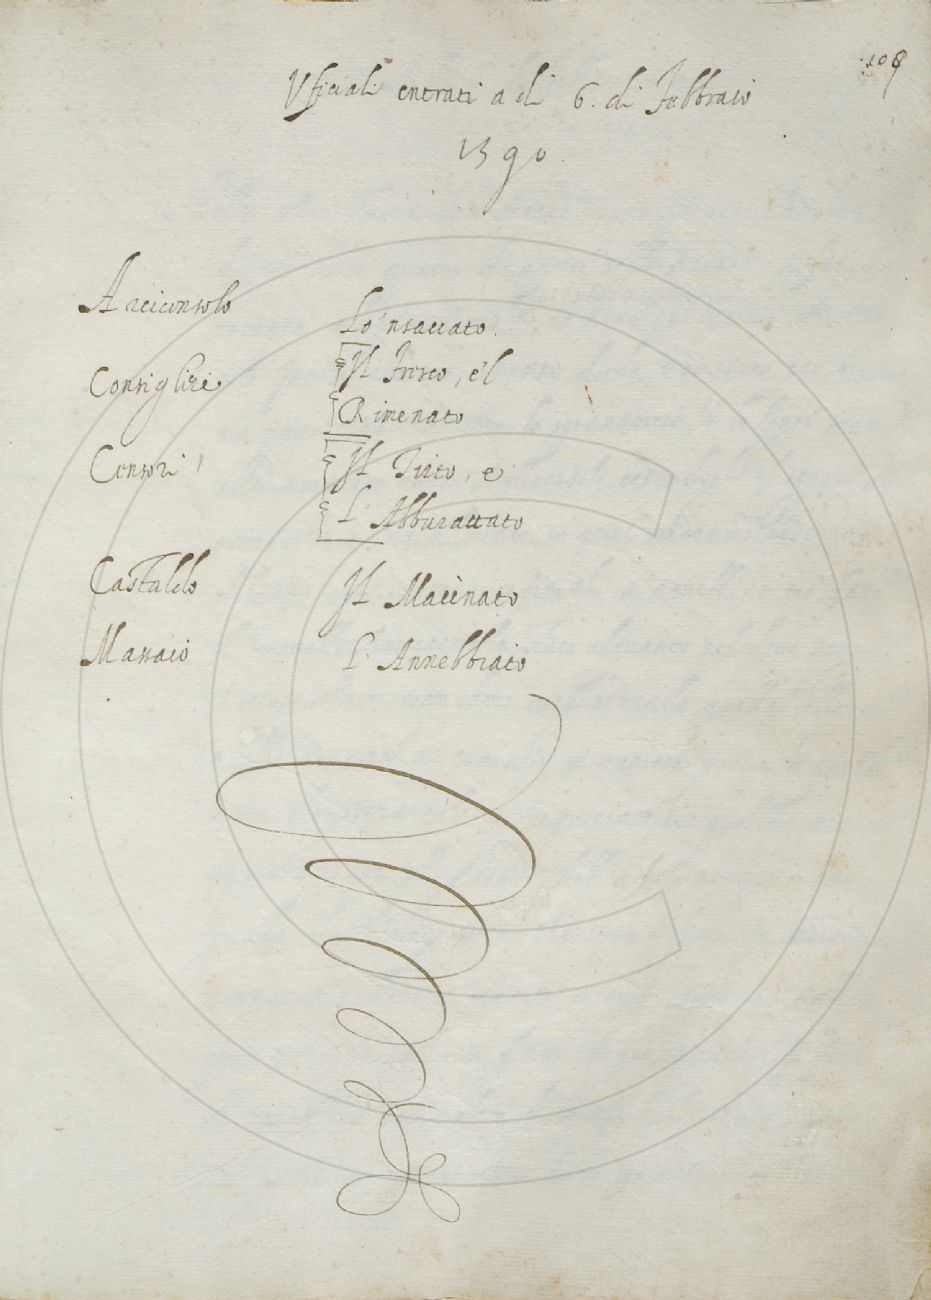 108
Uficiali entrati a di 6. di Febbraio
1590
Arciconsolo Lo 'nsaccato.
Consiglieri Il Fresco, e'l
Rimenato
Censori Il Trito, e
L' Abburattato
Castaldo Il Macinato
Massaio L' Annebbiato